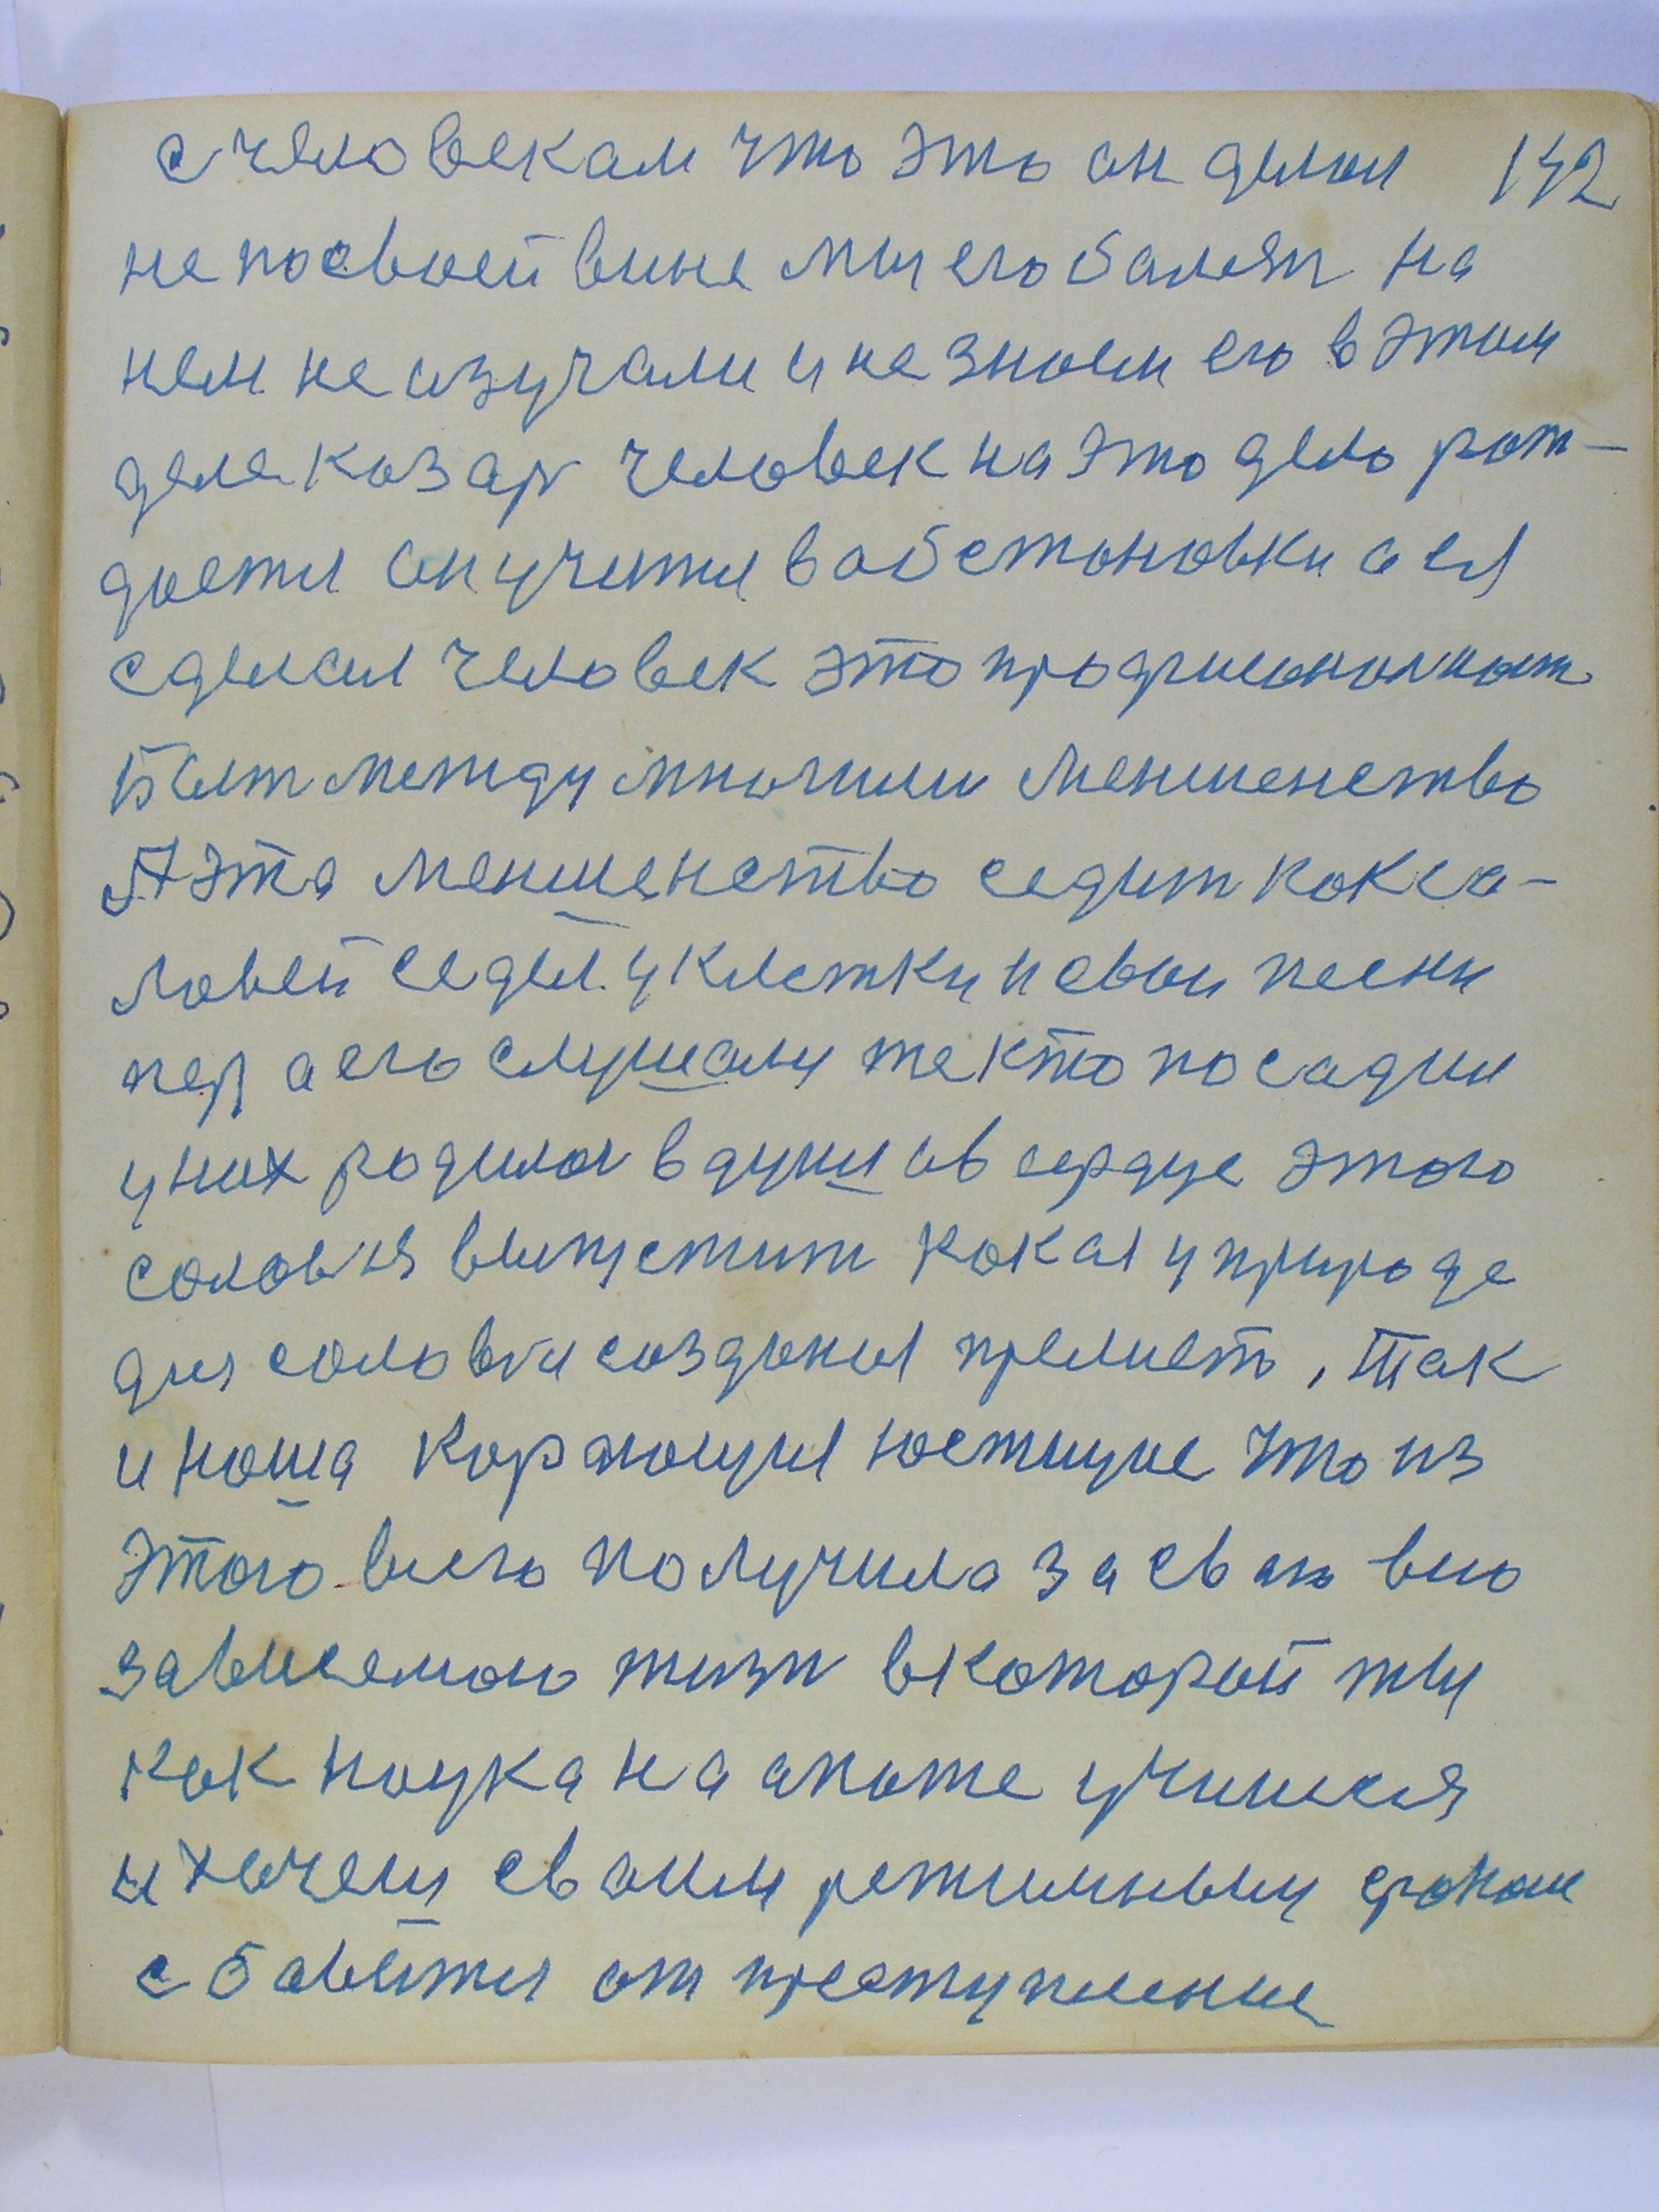 с человекам что это он делал 142
не посвоей вине мы его балезн на
нем не изучали и не знаем его в этим
деле козар человек на это дело рож-
дается он учится в абстоновки а ея
сделал человек это
Быт между многими меншенство
А эта меншенство седит как са-
ловей седел у клетки и свои песни
пел а его слушали те кто посадил
у них родилас в душе и в сердце этого
соловья выпустит как ая у природе
для соловья создания прелиеть, так
и наша карающия юстицие что из
этого всего получила за сваю всю
зависемою жизн в которой ты
как наука на апыте учишся
и хочеш сваим режимным сроком
сбавится от преступление